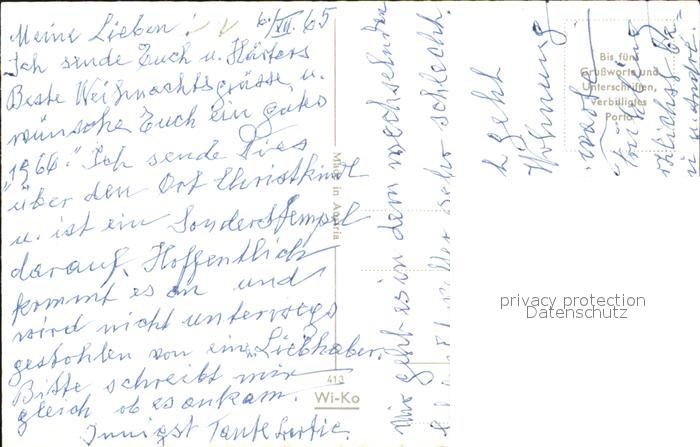 6./XII. 65
Meine Lieben!
Ich sende Euch u. Härters
Beste Weihnachtsgrüsse u.
wünsche Euch ein gutes
"1966." Ich sende Dies
über den Ort Christkindl
u. ist ein Sonderstempel
darauf. Hoffentlich
kommt es an und
wird nicht unterwegs
gestohlen von einem Liebhaber.
Bitte schreibt mir
gleich ob es ankam.
Innigst Tante
Mir geht es in dem wechselnden
sehr schlecht.
geht
Wohnung
warte
Frühling
Bis fünf
Grußworte und
Unterschriften,
verbilligtes
Porto
Made in Austria
413
Wi-Ko
privacy protection
Datenschutz